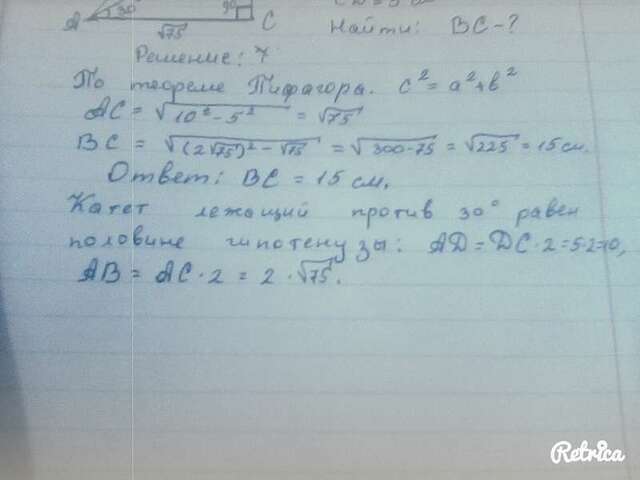 A 30° 90° C
√75
Найти: BC-?
Решение:
По теореме Пифагора. c² = a² + b²
AC = √10² - 5² = √75
BC = √(2√75)² - √75 = √300-75 = √225 = 15 см.
Ответ: BC = 15 см.
Катет лежащий против 30° равен
половине гипотенузы: AD = DC · 2 = 5·2=10,
AB = AC · 2 = 2 · √75.
Retrica